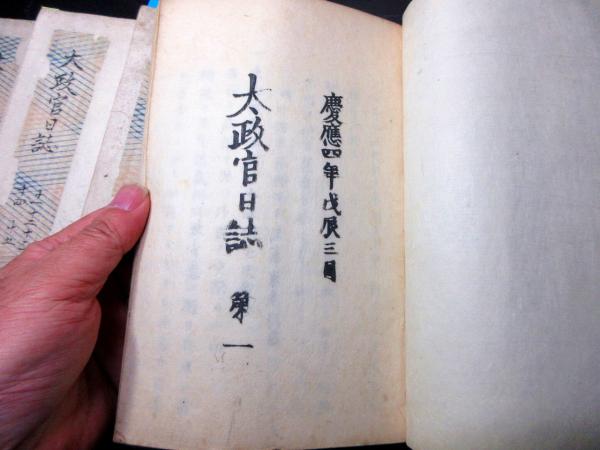 慶應四年戊辰三月
太政官日誌 第一
太政官日誌